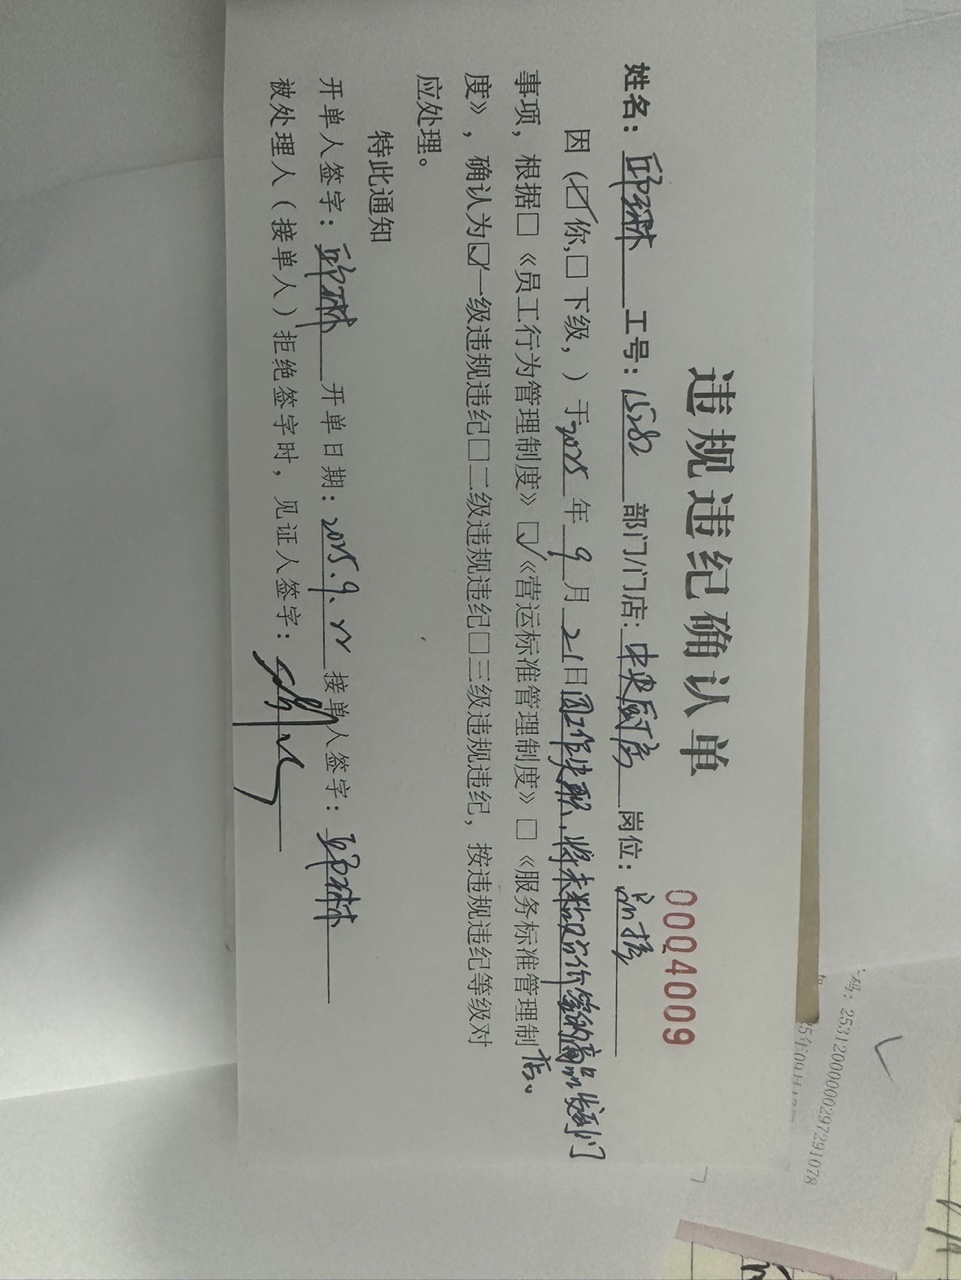 违规违纪确认单
0004009
姓名：邱琳 工号：15282 部门/门店：中央厨房 岗位：品控
因（☑你,□下级，）于2025年9月21日因工作失职，将未粘贴合价签的商品发到门店。
事项，根据□《员工行为管理制度》☑《营运标准管理制度》□《服务标准管理制
度》，确认为☑一级违规违纪□二级违规违纪□三级违规违纪，按违规违纪等级对
应处理。
特此通知
开单人签字：邱琳 开单日期：2025.9.22 接单人签字：邱琳
被处理人（接单人）拒绝签字时，见证人签字：
码：25312000000297291078